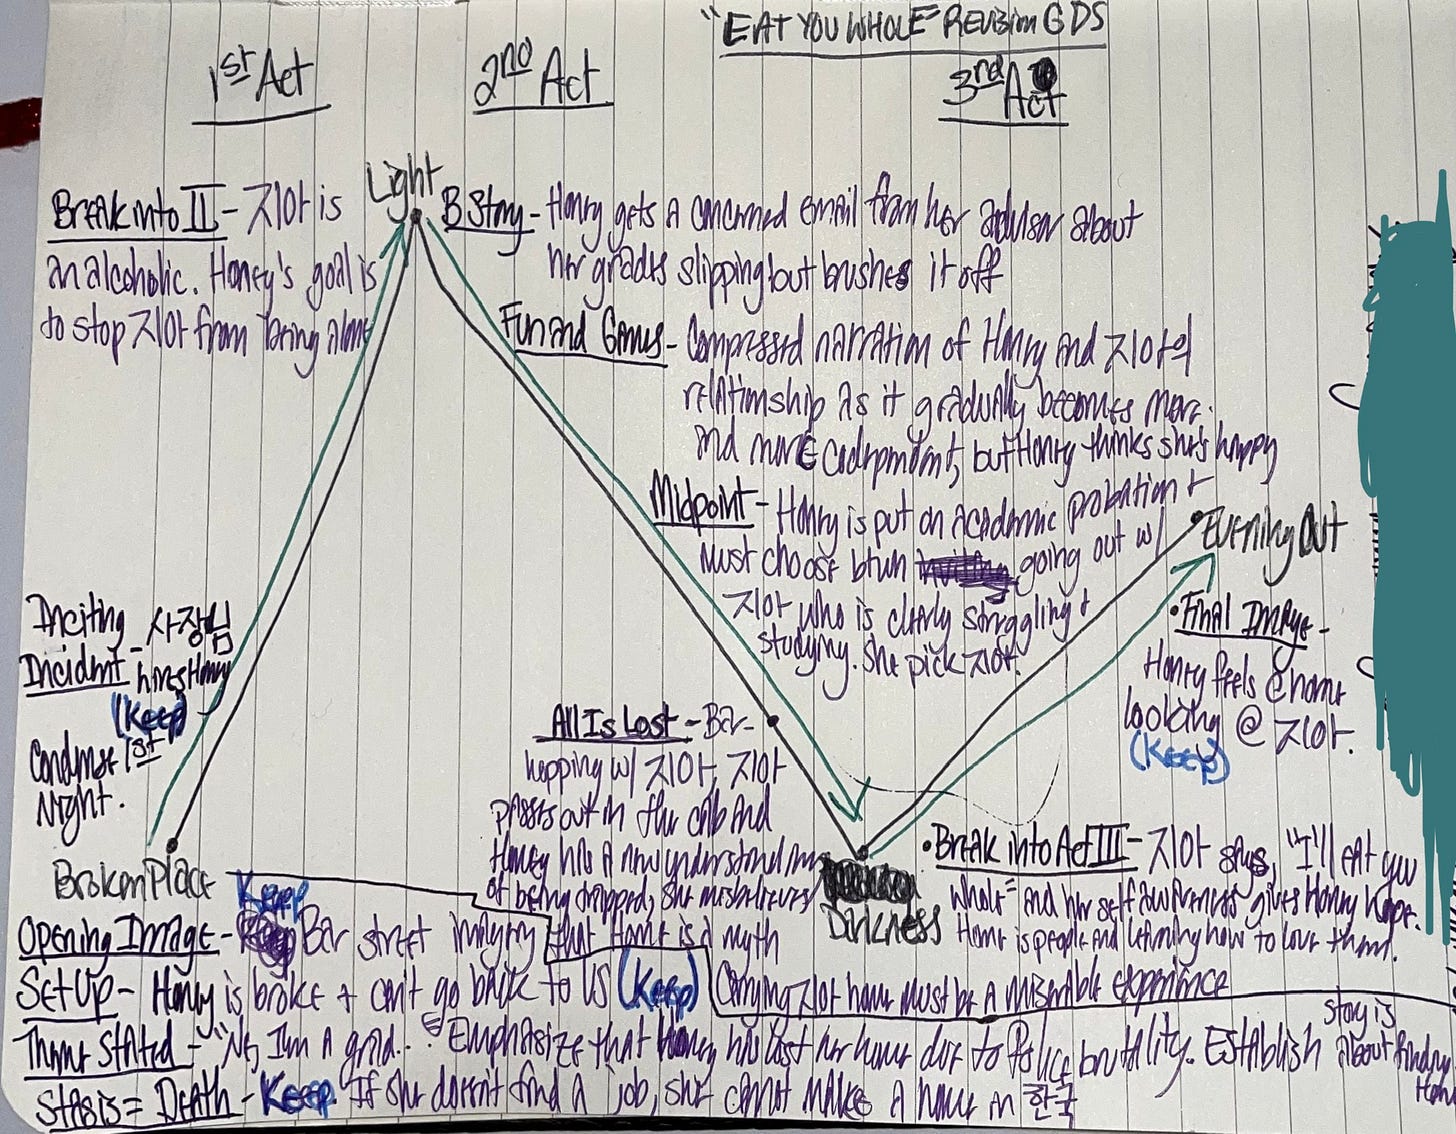 "EAT YOU WHOLE" REVISION GDS
1st Act
2nd Act
3rd Act
Light
Break into II - 지아 is
an alcoholic. Honey's goal is
to stop 지아 from being alone
B Story - Honey gets a concerned email from her advisor about
her grades slipping but brushes it off
Fun and Games - Compressed narration of Honey and 지아의
relationship as it gradually becomes more
and more codependent, but Honey thinks she's happy
Midpoint - Honey is put on academic probation +
must choose btwn going out w/
지아 who is clearly struggling +
studying. She pick 지아.
Evening Out
• Final Image -
Honey feels @ home
looking @ 지아.
(Keep)
Inciting - 사장님
Incident hires Honey
(Keep)
Condense 1st
Night.
Broken Place
All Is Lost - Bar-
hopping w/ 지아, 지아
passes out in the cab and
Honey has a new understanding
of being trapped, she misbelieves
that Home is a myth
Carrying 지아 home must be a miserable experience
Darkness
• Break into Act III - 지아 says, "I'll eat you
whole" and her self awareness gives Honey hope.
Home is people and learning how to love them.
Keep
Opening Image - Bar street imagery
Set Up - Honey is broke + can't go back to US (Keep)
Theme Stated - "No, I'm a grad.." Emphasize that Honey has lost her home due to Police brutality. Establish story is about finding Home
Stasis = Death - Keep. If she doesn't find a job, she cannot make a home in 한국